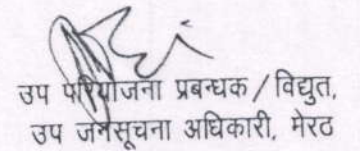 उप परियोजना प्रबन्धक / विद्युत,
उप जनसूचना अधिकारी, मेरठ